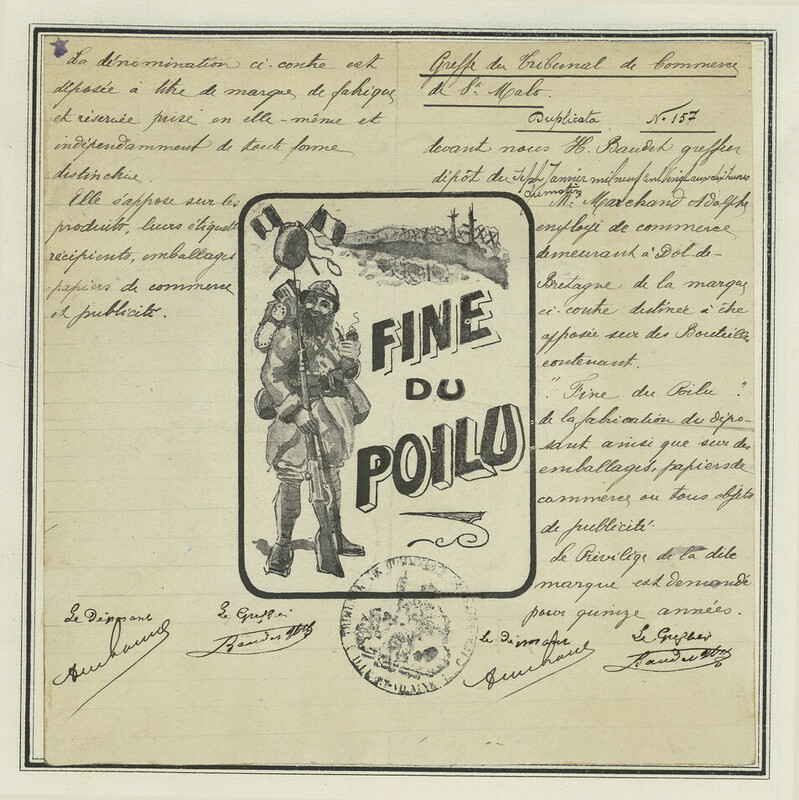 La dénomination ci-contre est
déposée à titre de marque de fabrique
et réservée prise en elle-même et
indépendamment de toute forme
distinctive.
Elle s'appose sur les
produits, leurs étiquettes
récipients, emballages
papiers de commerce
et publicité.
Greffe du Tribunal de Commerce
de St. Malo.
Duplicata No. 157
devant nous H. Baudet greffier
dépôt du Janvier mil neuf cent vingt
du matin
Mr. Marchand Adolphe
employé de commerce
demeurant à Dol-de-
Bretagne de la marque
ci contre destinée à être
apposée sur des Bouteilles
contenant.
"Fine du Poilu"
de la fabrication du dépo-
sant ainsi que sur des
emballages, papiers de
commerce ou tous objets
de publicité.
Le Privilège de la dite
marque est demandé
pour quinze années.
FINE
DU
POILU
Le Déposant Le Greffier
Baudet
TRIBUNAL DE COMMERCE
ILLE-ET-VILAINE
Le déposant Le Greffier
Baudet